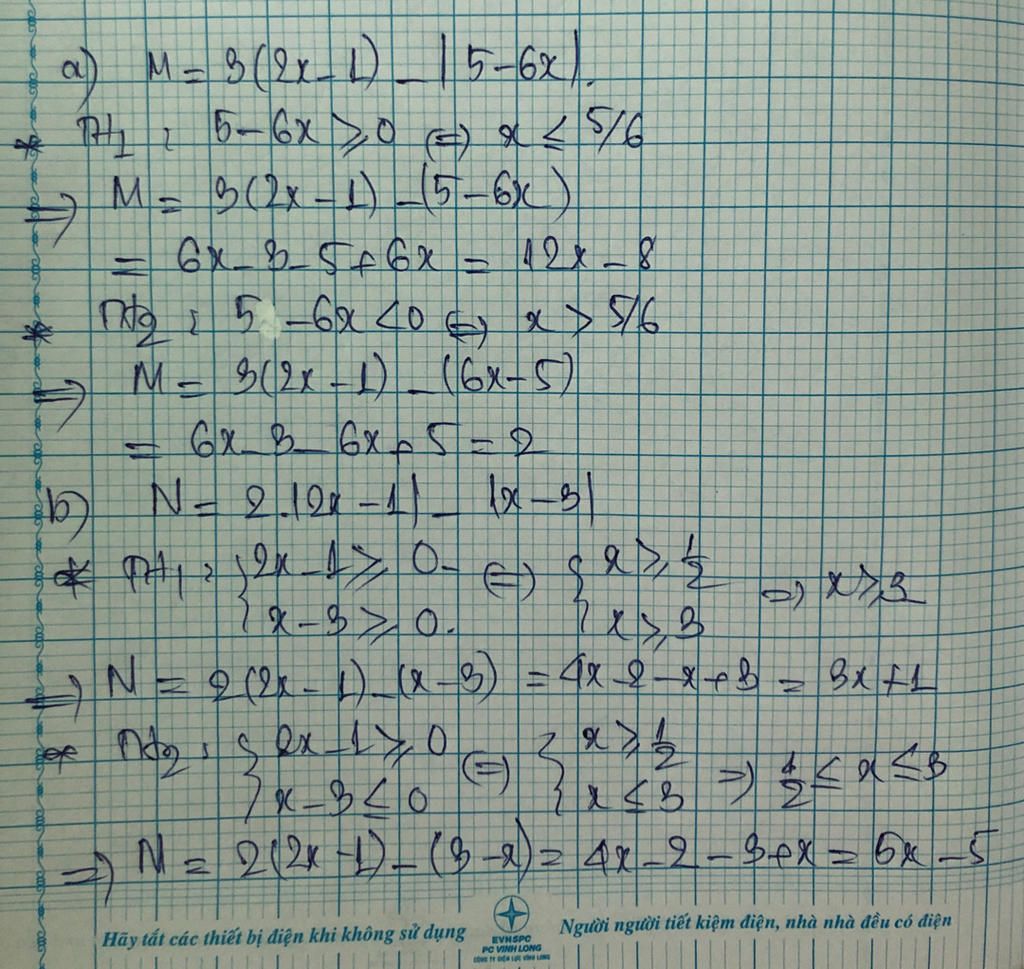 a) M = 3(2x - 1) - |5 - 6x|.
* TH1 : 5 - 6x ≥ 0 (=) x ≤ 5/6
=> M = 3(2x - 1) - (5 - 6x)
= 6x - 3 - 5 + 6x = 12x - 8
* TH2 : 5 - 6x < 0 (=) x > 5/6
=> M = 3(2x - 1) - (6x - 5)
= 6x - 3 - 6x + 5 = 2
b) N = 2.|2x - 1| - |x - 3|
* TH1 : { 2x - 1 ≥ 0. (=) { x ≥ 1/2 => x ≥ 3
x - 3 ≥ 0. x ≥ 3
=> N = 2(2x - 1) - (x - 3) = 4x - 2 - x + 3 = 3x + 1
* TH2 : { 2x - 1 ≥ 0 (=) { x ≥ 1/2 => 1/2 ≤ x ≤ 3
x - 3 ≤ 0 x ≤ 3
=> N = 2(2x - 1) - (3 - x) = 4x - 2 - 3 + x = 5x - 5
Hãy tắt các thiết bị điện khi không sử dụng
EVNSPC
PC VINH LONG
CÔNG TY ĐIỆN LỰC VĨNH LONG
Người người tiết kiệm điện, nhà nhà đều có điện